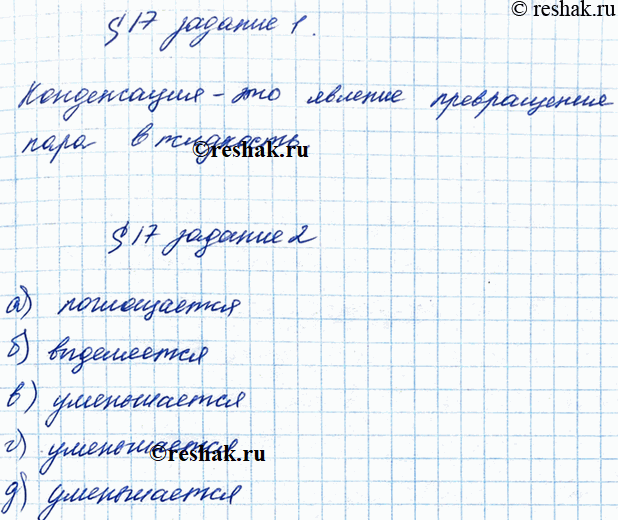 © reshak.ru
§ 17 задание 1.
Конденсация - это явление превращения
пара в жидкость
©reshak.ru
§ 17 задание 2
а) поглощается
б) выделяется
в) уменьшается
г) уменьшается
©reshak.ru
д) уменьшается